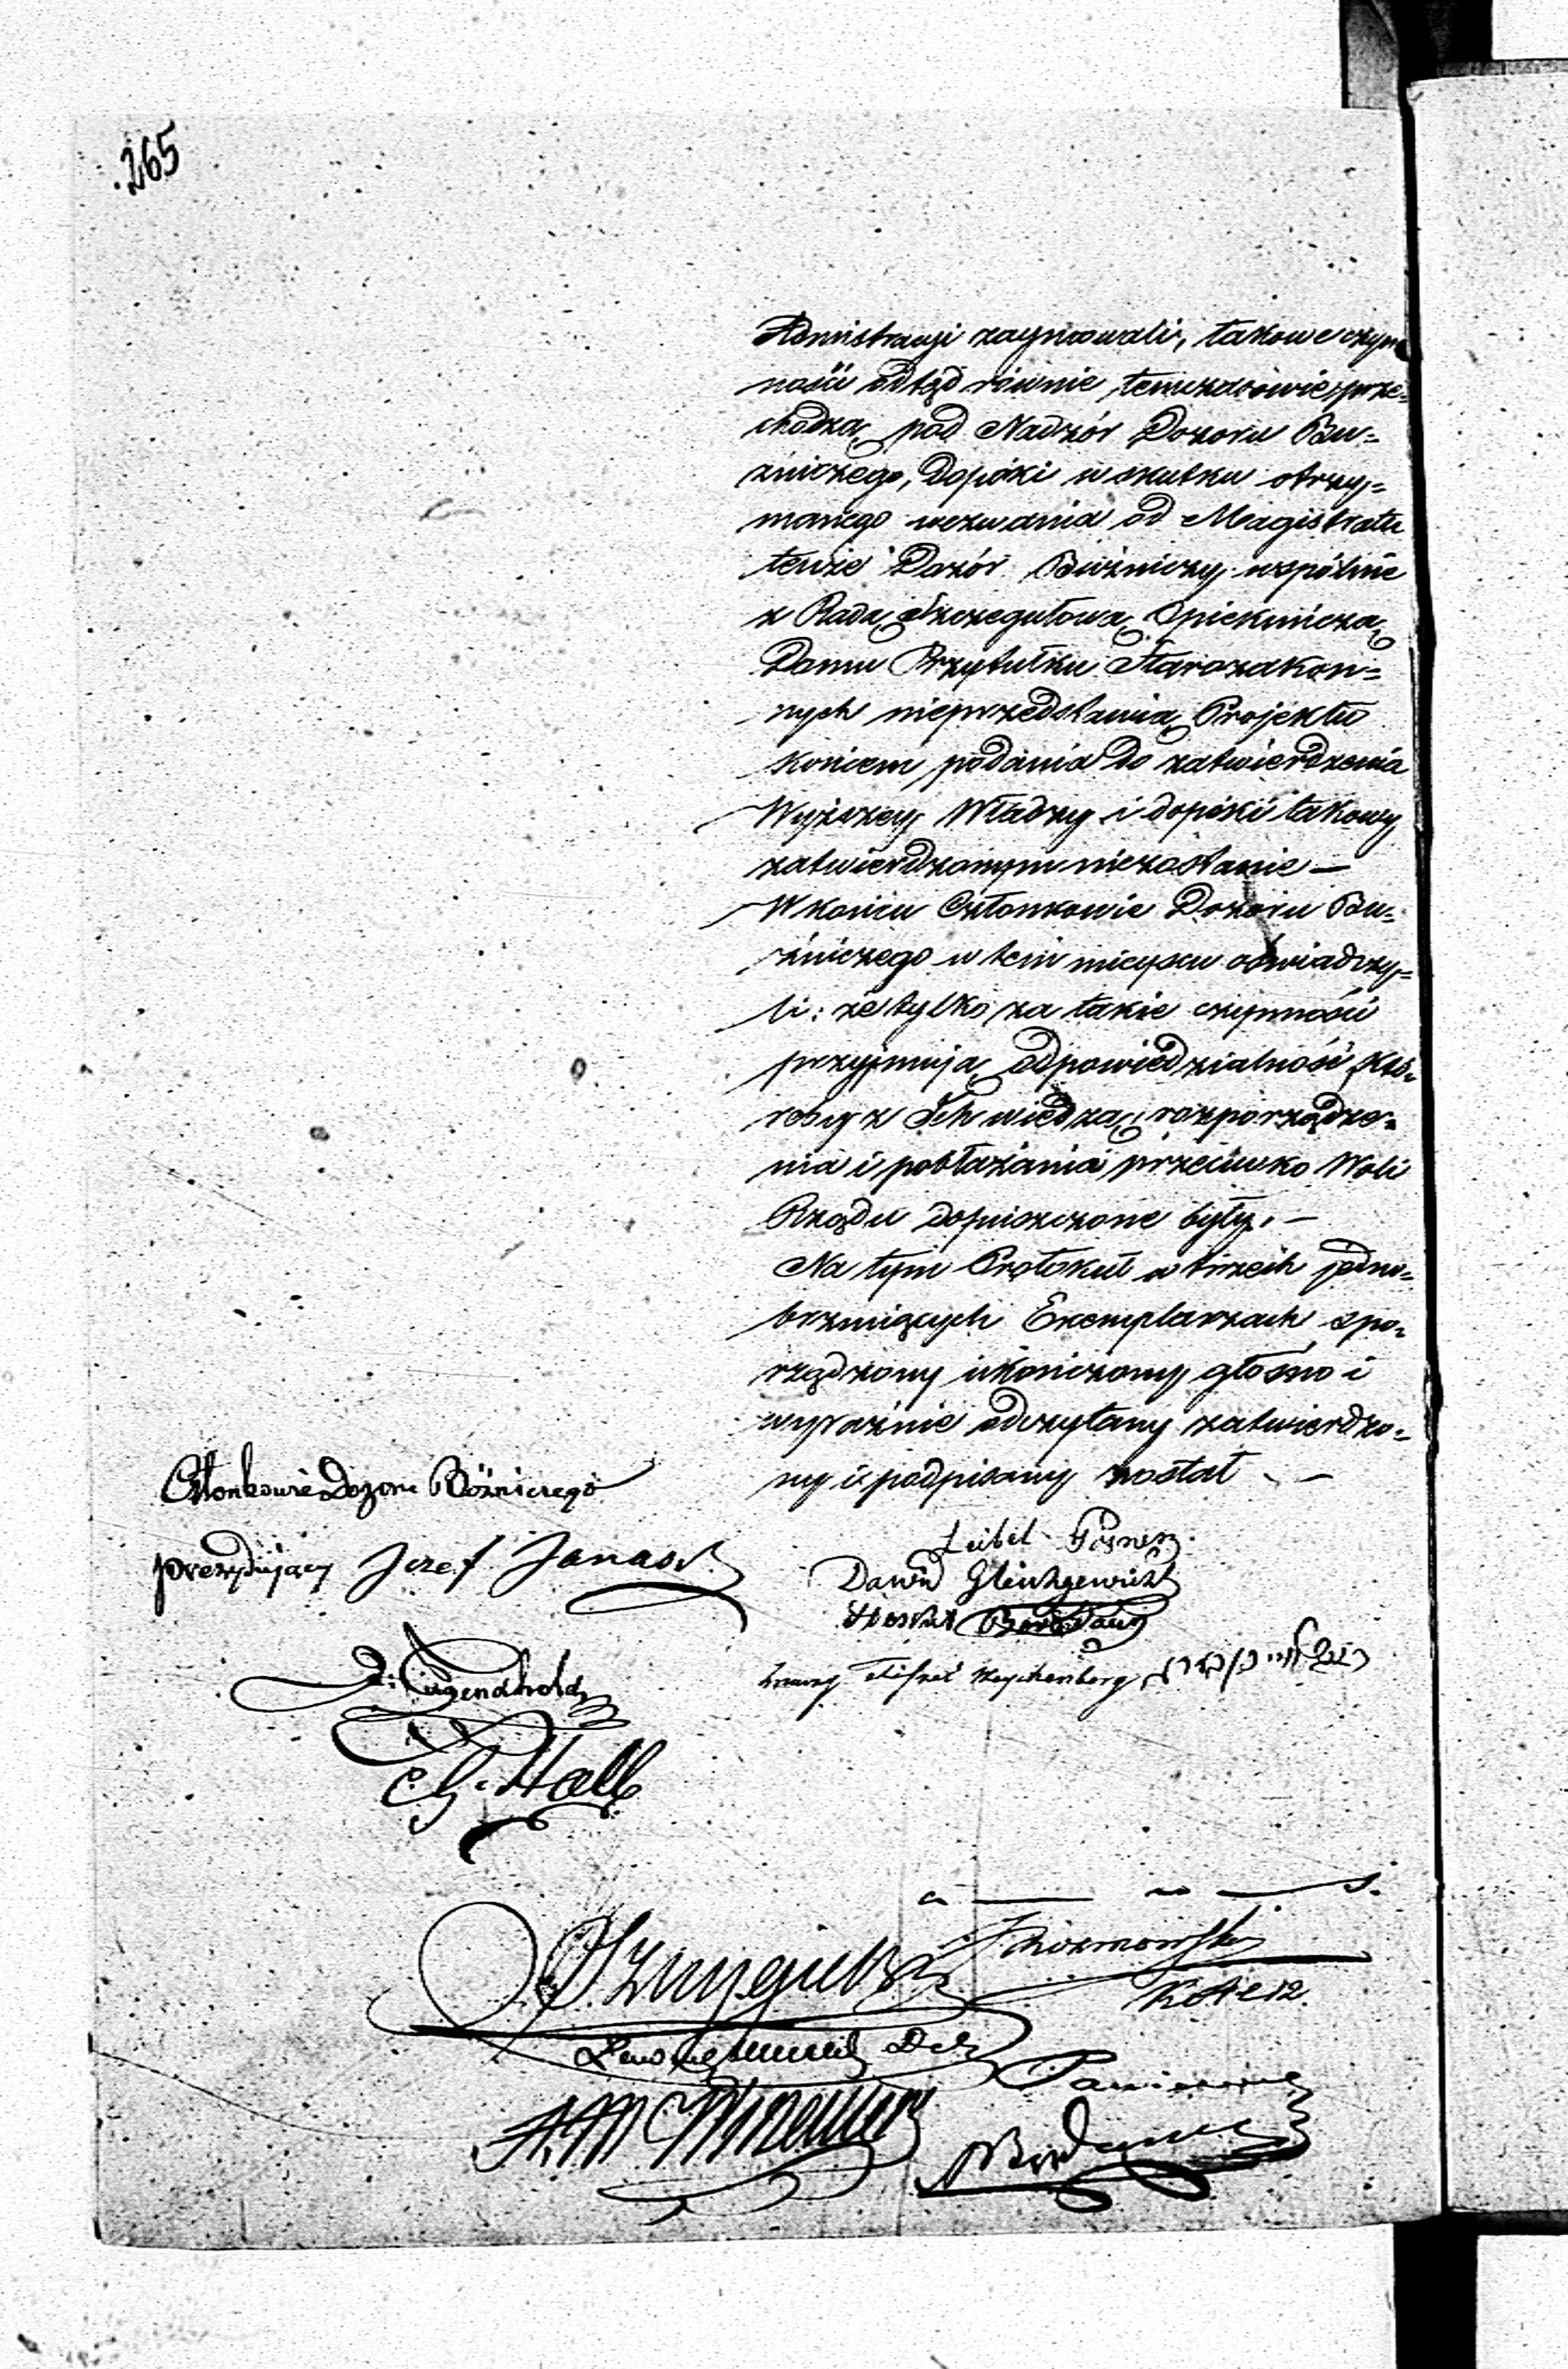 265
Admistracji zaymowali, takowe czyn
ności odtąd równie temczasowie prze=
chodzą pod Nadzór Dozoru Bu=
źniczego, dopóki w skutku otrzy=
manego wezwania od Magistratu
tenże Dozór Buźniczy wspólnie
z Radą Szczegułową Opiekuńczą
Domu Przytułku Starozakon=
nych nieprzedstawią Projektu
końcem podania do zatwierdzenia
Wyższey Władzy i dopóki takowy
zatwierdzonym niezostanie —
W końcu Członkowie Dozoru Bu=
źniczego w tem mieyscu oświadczy=
li: że tylko za takie czynności
przyjmują odpowiedzialność, któ=
reby z Ich wiedzą, rozporządze=
nia i pobłażania przeciwko Woli
Rządu dopuszczone były. —
Na tym Protokuł w trzech jedno=
brzmiących Exemplarzach spo=
rządzony ukończony głośno i
wyraźnie odczytany zatwierdzo=
ny i podpisany został —
Członkowie Dozoru Bóżniczego
prezydujący Jozef Janasz
Leibel Posner
Dawid Gleichgewicht
J: Tugendhold
Ch. Halb